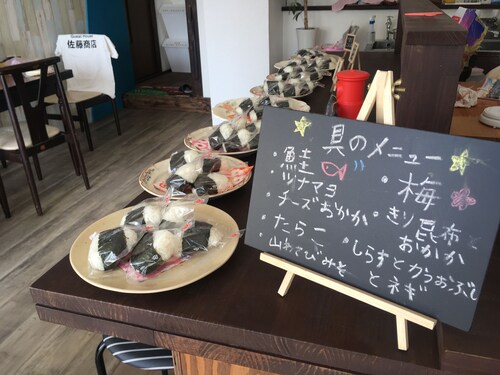 佐藤商店
具のメニュー
・鮭
・梅
・ツナマヨ
・チーズおかか
・きり昆布
おかか
・たらこ
・しらすとかつおぶし
とネギ
山わさびみそ